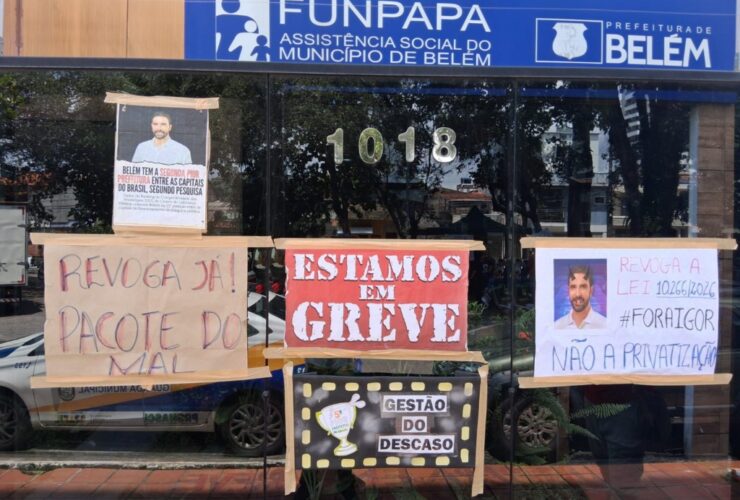 FUNPAPA
ASSISTÊNCIA SOCIAL DO
MUNICÍPIO DE BELÉM
PREFEITURA DE
BELÉM
1018
BELÉM TEM A SEGUNDA PIOR
PREFEITURA ENTRE AS CAPITAIS
DO BRASIL, SEGUNDO PESQUISA
REVOGA JÁ!
PACOTE DO
MAL
ESTAMOS
EM
GREVE
REVOGA A
LEI 10.266/2026
#FORAIGOR
NÃO A PRIVATIZAÇÃO
GESTÃO
DO
DESCASO
GUARDA MUNICIPAL